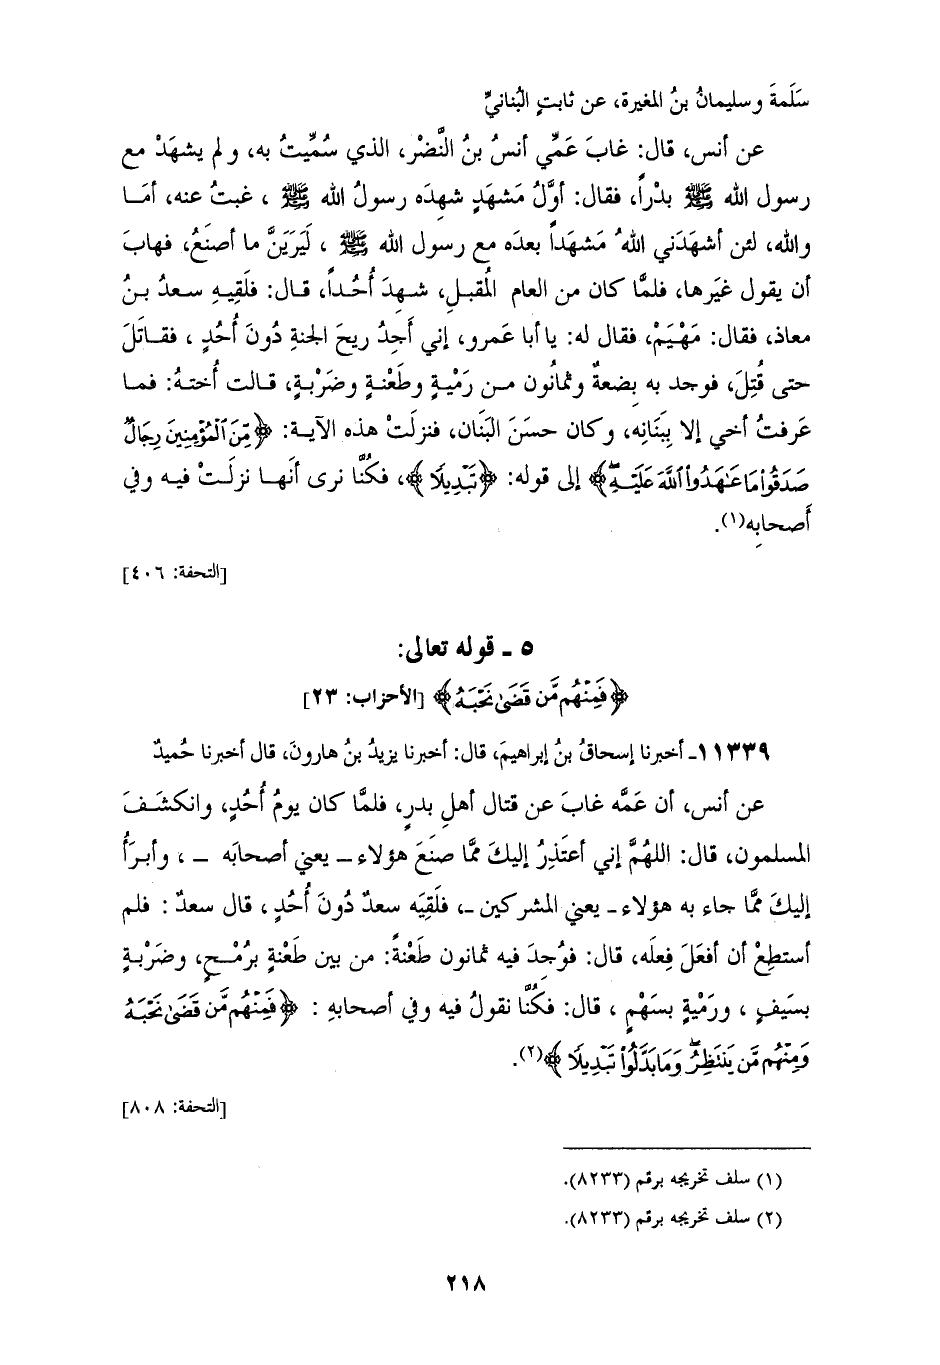 سَلَمةَ وسليمانُ بنُ المغيرة، عن ثابتٍ البُنانيِّ
عن أنس، قال: غابَ عَمِّي أنسُ بنُ النَّضْر، الذي سُمِّيتُ به، ولم يشهَدْ مع
رسول الله ﷺ بدْراً، فقال: أوَّلُ مَشهَدٍ شهِدَه رسولُ الله ﷺ ، غبتُ عنه، أمَا
والله، لئن أشهَدَني اللهُ مَشهَداً بعدَه مع رسول الله ﷺ ، لَيَرَيَنَّ ما أصنَعُ، فهابَ
أن يقول غيَرها، فلمَّا كان من العام المُقبلِ، شهِدَ أُحُداً، قال: فلَقِيهِ سعدُ بنُ
معاذ، فقال: مَهْيَمْ، فقال له: يا أبا عَمرو، إني أَجِدُ ريحَ الجنةِ دُونَ أُحُدٍ ، فقاتَلَ
حتى قُتِلَ، فوجد به بِضعةٌ وثمانُون من رَمْيةٍ وطَعْنةٍ وضَرْبةٍ، قالت أُختهُ: فما
عَرفتُ أخي إلا بِبَنَانِه، وكان حسَنَ البَنَان، فنزلَتْ هذه الآية: ﴿مِّنَ ٱلْمُؤْمِنِينَ رِجَالٌ
صَدَقُواْ مَا عَٰهَدُواْ ٱللَّهَ عَلَيْهِ﴾ إلى قوله: ﴿تَبْدِيلًا﴾، فكُنَّا نرى أَنها نزلَتْ فيه وفي
أَصحابِه(١).
[التحفة: ٤٠٦]
٥ ـ قوله تعالى:
﴿فَمِنْهُم مَّن قَضَىٰ نَحْبَهُۥ﴾ [الأحزاب: ٢٣]
١١٣٣٩ـ أخبرنا إسحاقُ بنُ إبراهيمَ، قال: أخبرنا يزيدُ بنُ هارونَ، قال أخبرنا حُميدٌ
عن أنس، أن عَمَّه غابَ عن قتال أهلِ بدرٍ، فلمَّا كان يومُ أُحُدٍ، وانكشَفَ
المسلمون، قال: اللهُمَّ إني أعتَذِرُ إليكَ مَّمَا صنَعَ هؤلاء ــ يعني أصحابَه ــ ، وأبرَأُ
إليكَ مَّمَا جاء به هؤلاء ــ يعني المشركين ــ، فلَقِيَه سعدٌ دُونَ أُحُدٍ ، قال سعدٌ : فلم
أستطِعْ أن أفعَلَ فِعلَه، قال: فوُجدَ فيه ثمانون طَعْنةً: من بين طَعْنةٍ برُمْحٍ، وضَرْبةٍ
بسَيفٍ ، ورَمْيةٍ بسَهْمٍ ، قال: فكُنَّا نقولُ فيه وفي أصحابهِ : ﴿فَمِنْهُم مَّن قَضَىٰ نَحْبَهُۥ
وَمِنْهُم مَّن يَنتَظِرُ وَمَا بَدَّلُواْ تَبْدِيلًا﴾(٢).
[التحفة: ٨٠٨]
(١) سلف تخريجه برقم (٨٢٣٣).
(٢) سلف تخريجه برقم (٨٢٣٣).
٢١٨